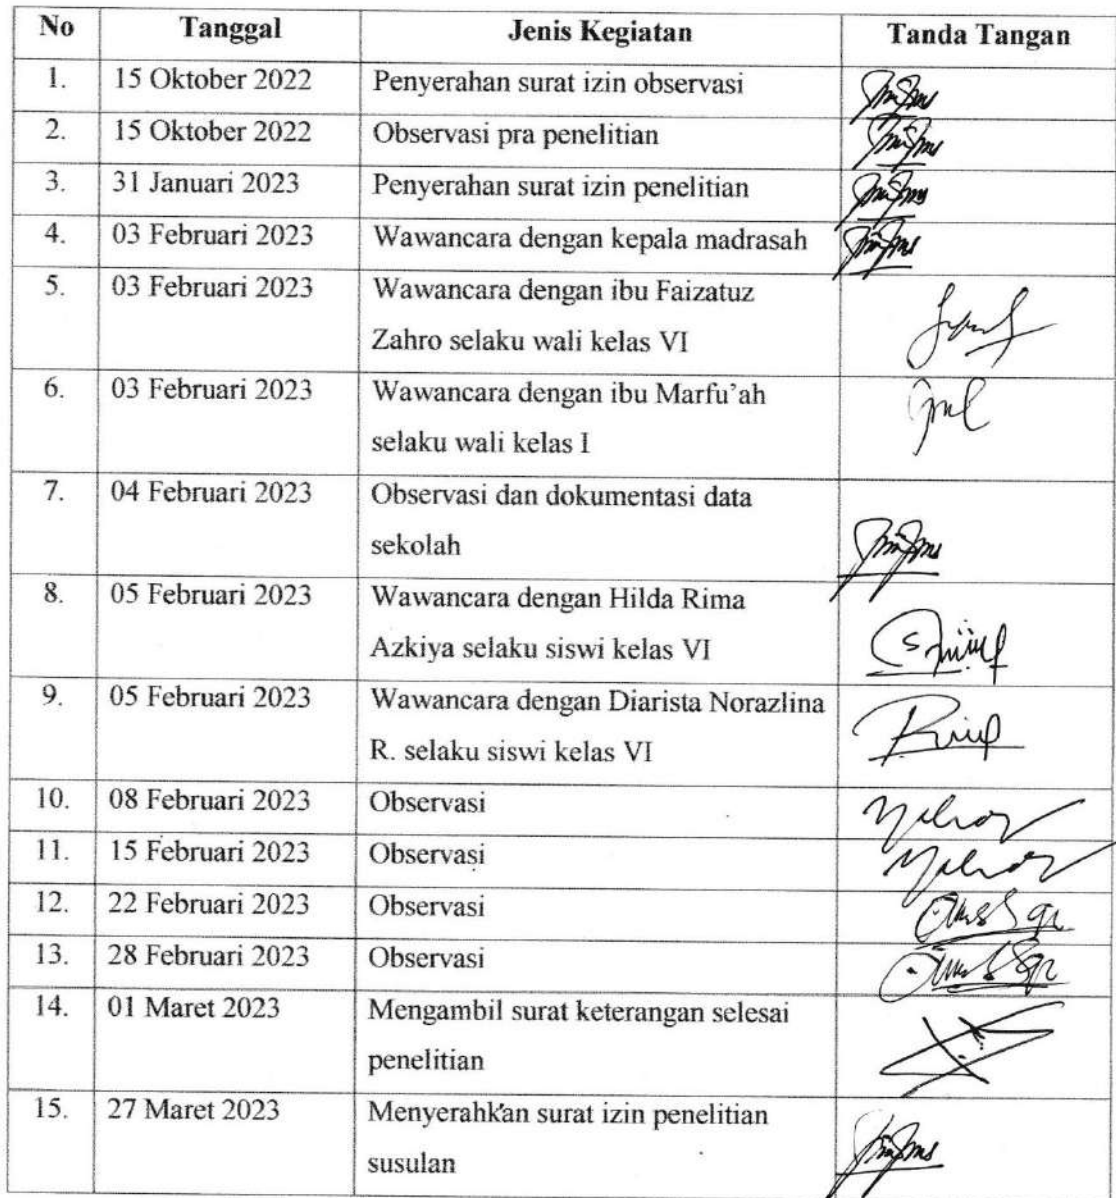 No Tanggal Jenis Kegiatan Tanda Tangan
1. 15 Oktober 2022 Penyerahan surat izin observasi
2. 15 Oktober 2022 Observasi pra penelitian
3. 31 Januari 2023 Penyerahan surat izin penelitian
4. 03 Februari 2023 Wawancara dengan kepala madrasah
5. 03 Februari 2023 Wawancara dengan ibu Faizatuz
Zahro selaku wali kelas VI
6. 03 Februari 2023 Wawancara dengan ibu Marfu'ah
selaku wali kelas I
7. 04 Februari 2023 Observasi dan dokumentasi data
sekolah
8. 05 Februari 2023 Wawancara dengan Hilda Rima
Azkiya selaku siswi kelas VI
9. 05 Februari 2023 Wawancara dengan Diarista Norazlina
R. selaku siswi kelas VI
10. 08 Februari 2023 Observasi
11. 15 Februari 2023 Observasi
12. 22 Februari 2023 Observasi
13. 28 Februari 2023 Observasi
14. 01 Maret 2023 Mengambil surat keterangan selesai
penelitian
15. 27 Maret 2023 Menyerahkan surat izin penelitian
susulan